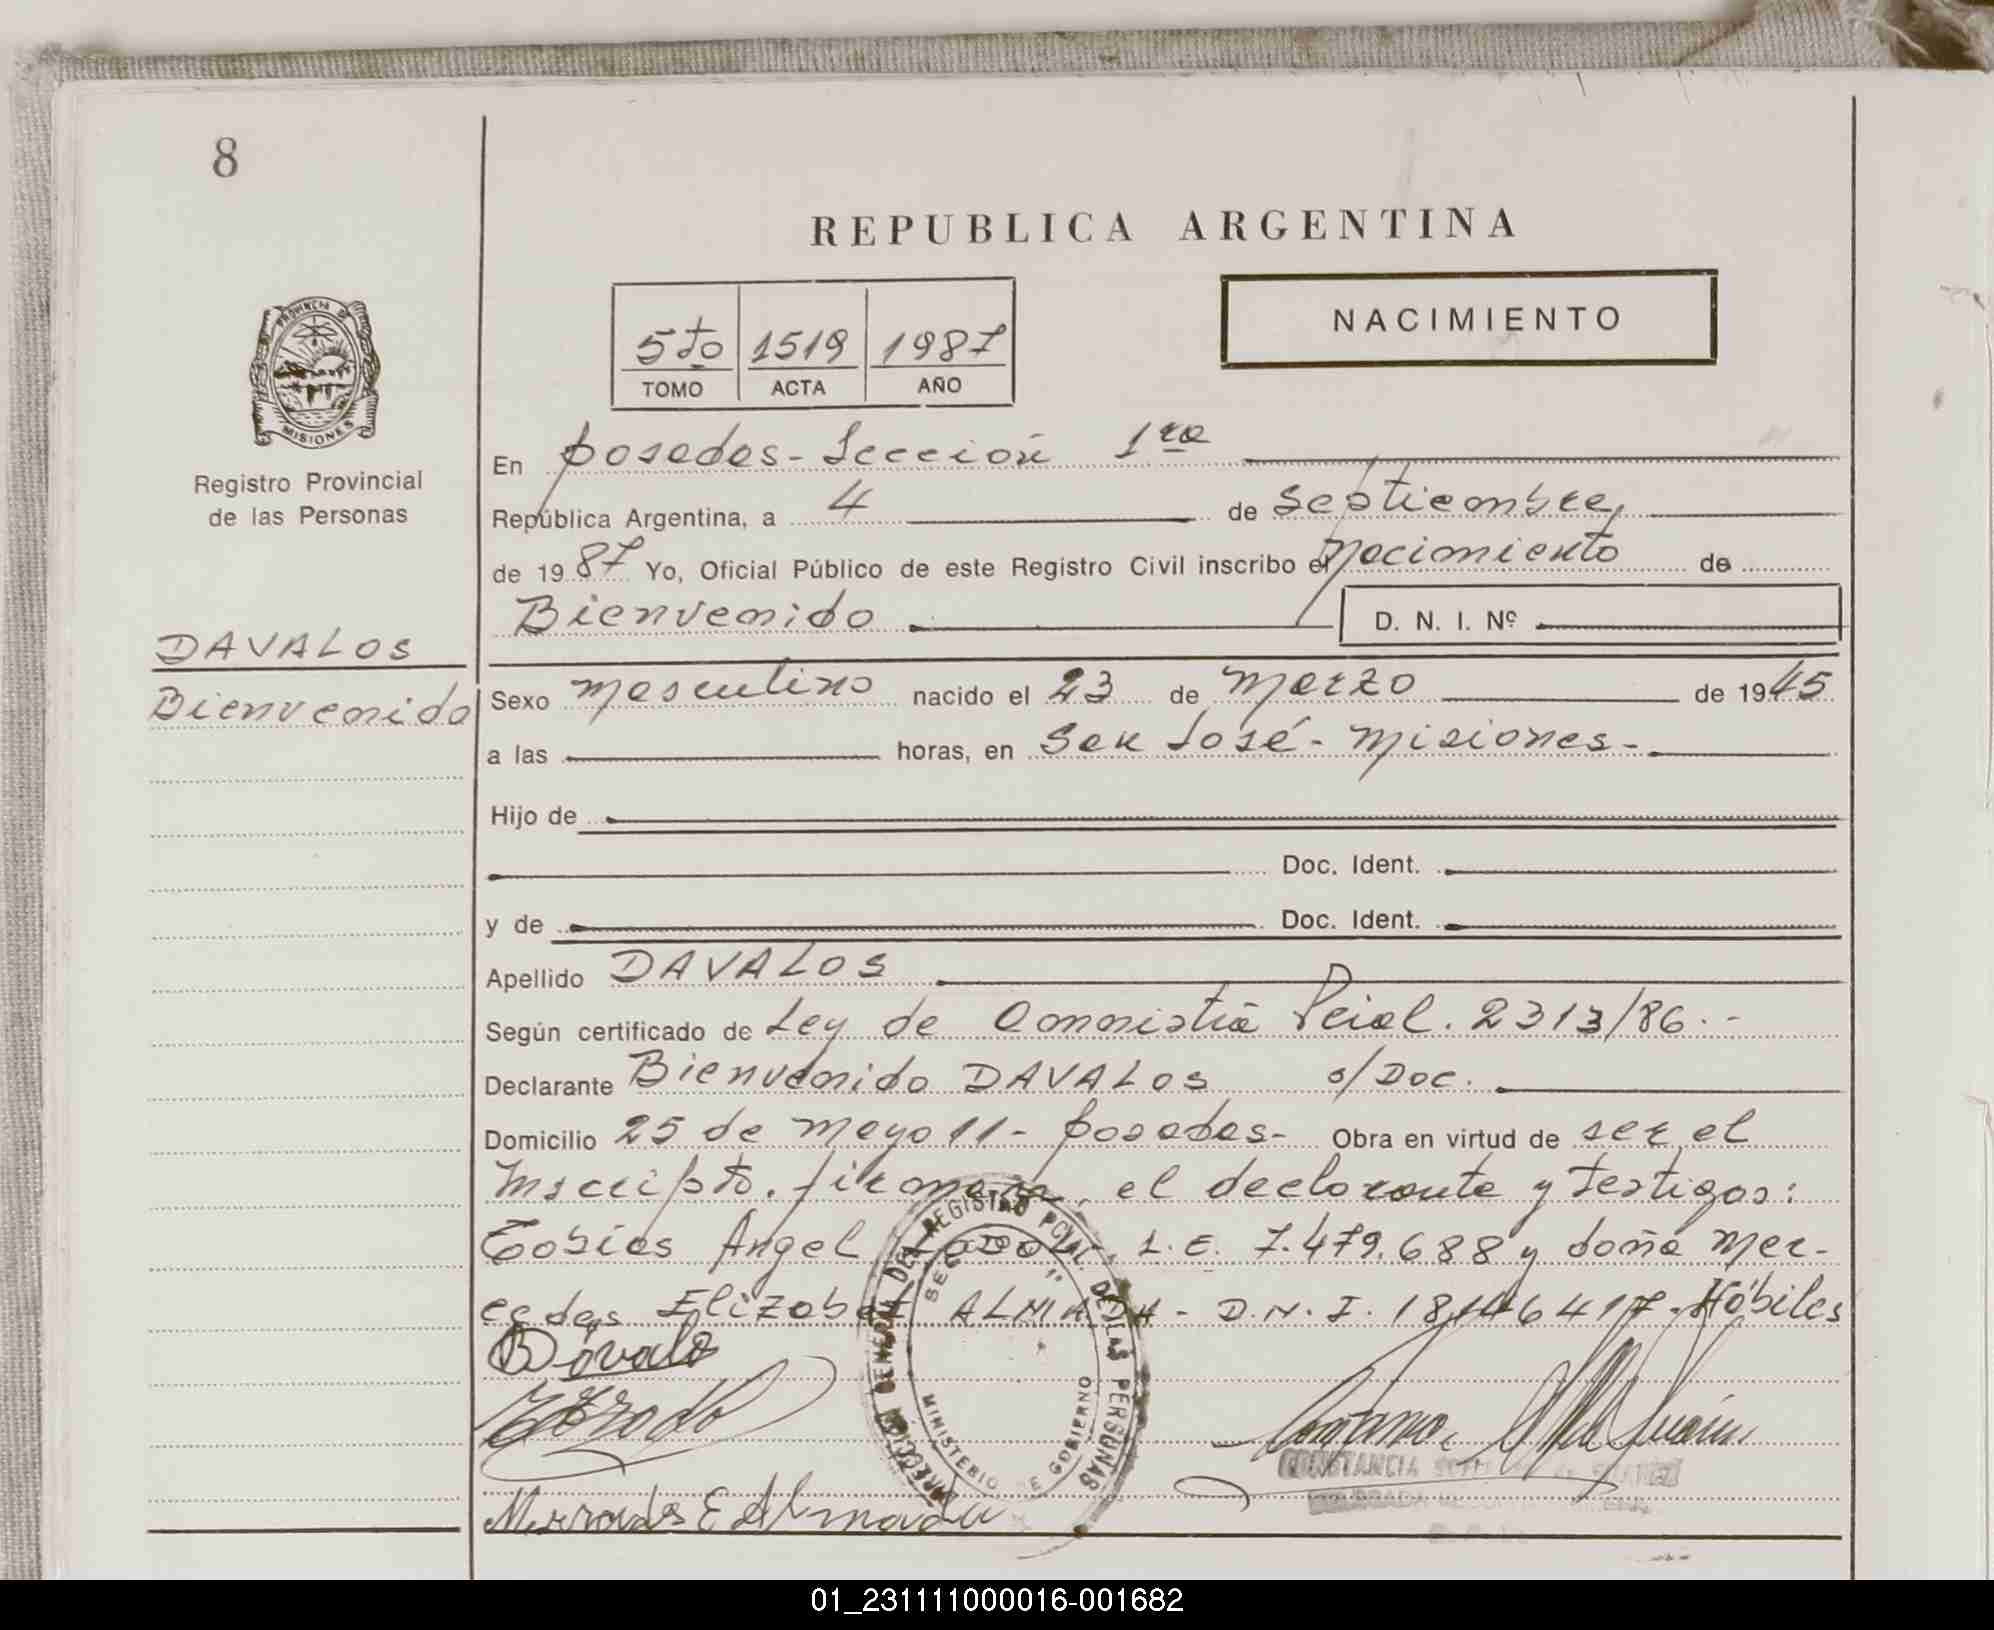 8
REPUBLICA ARGENTINA
5to 1519 1987
TOMO ACTA AÑO
NACIMIENTO
PROVINCIA DE MISIONES
Registro Provincial
de las Personas
En Posadas - Sección 1ra
República Argentina, a 4 de Septiembre,
de 1987 Yo, Oficial Público de este Registro Civil inscribo el nacimiento de
Bienvenido D. N. I. Nº
DAVALOS
Bienvenido
Sexo masculino nacido el 23 de Marzo de 1945
a las horas, en San José - Misiones -
Hijo de
Doc. Ident.
y de Doc. Ident.
Apellido DAVALOS
Según certificado de Ley de Amnistia Pcial. 2313/86.-
Declarante Bienvenido DAVALOS s/Doc.
Domicilio 25 de Mayo 11 - Posadas - Obra en virtud de ser el
Inscripto. firman, el declarante y testigos:
Tobias Angel L.E. 7.479.688 y doña Mer-
cedes Elizabet ALMADA - D.N.I. 18.146417 - Hábiles
Davalo
Mercedes E Almada
DIRECCION GENERAL DEL REGISTRO PCIAL. DE LAS PERSONAS
SECC 1º
MINISTERIO DE GOBIERNO
CONSTANCIA
01_231111000016-001682